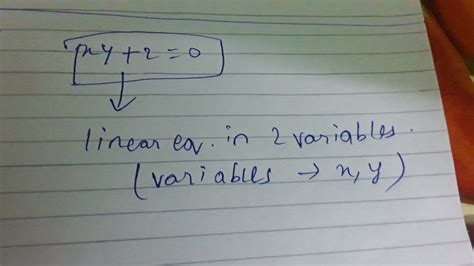 xy+2=0
linear eq. in 2 variables.
(variables → x, y)